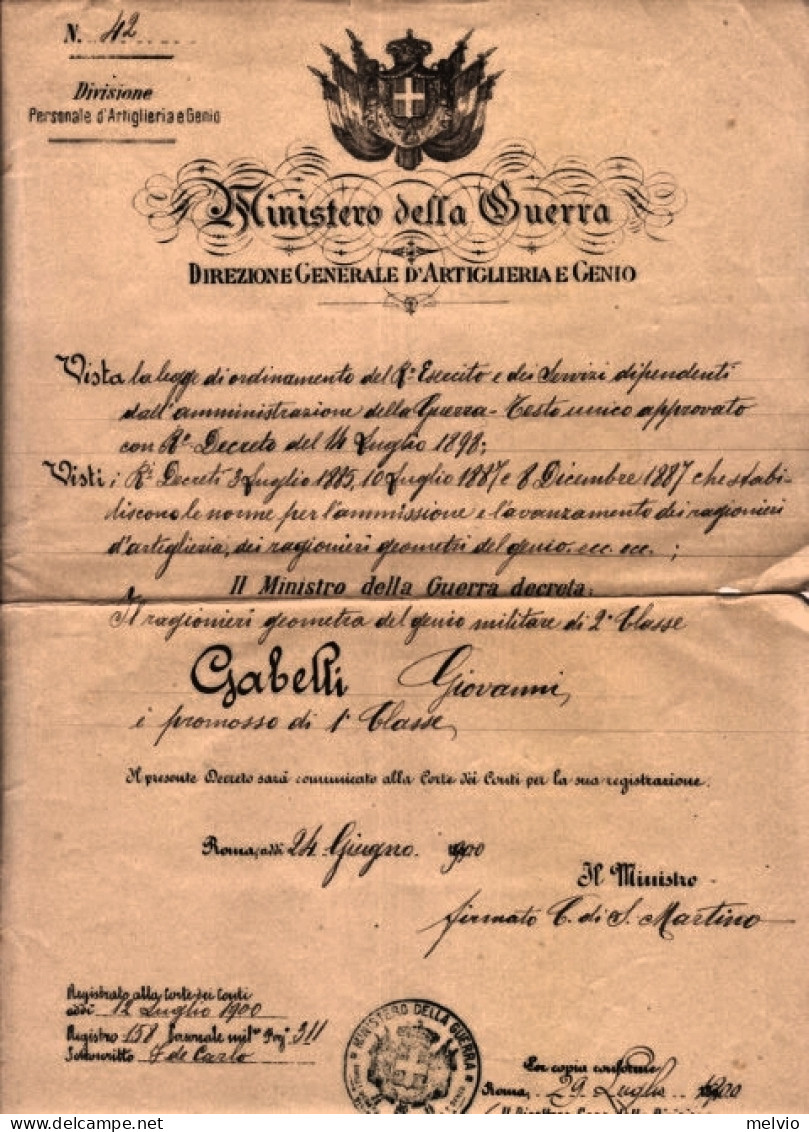 N. 42
Divisione
Personale d'Artiglieria e Genio
Ministero della Guerra
DIREZIONE GENERALE D'ARTIGLIERIA E GENIO
Vista la legge di ordinamento del R.º Esercito e dei Servizi dipendenti
dall'amministrazione della Guerra - Testo unico approvato
con R.º Decreto del 14 Luglio 1898;
Visti i R.i Decreti 3 Luglio 1885, 10 Luglio 1887 e 8 Dicembre 1887 che stabi-
liscono le norme per l'ammissione e l'avanzamento dei ragionieri
d'artiglieria, dei ragionieri geometri del genio. ecc. ecc. ;
Il Ministro della Guerra decreta:
Il ragionieri geometra del genio militare di 2ª Classe
Gabelli Giovanni,
è promosso di 1ª Classe,
Il presente Decreto sarà comunicato alla Corte dei Conti per la sua registrazione.
Roma, addì 24 Giugno 1900
Il Ministro
firmato C. di S. Martino
Registrato alla Corte dei Conti
addì 12 Luglio 1900
Registro 158 Personale mil.re Pag.ª 311
Sottoscritto F de Carlo
MINISTERO DELLA GUERRA
Per copia conforme
Roma, 29 Luglio 1900
Il Direttore Capo della Divisione
melvio